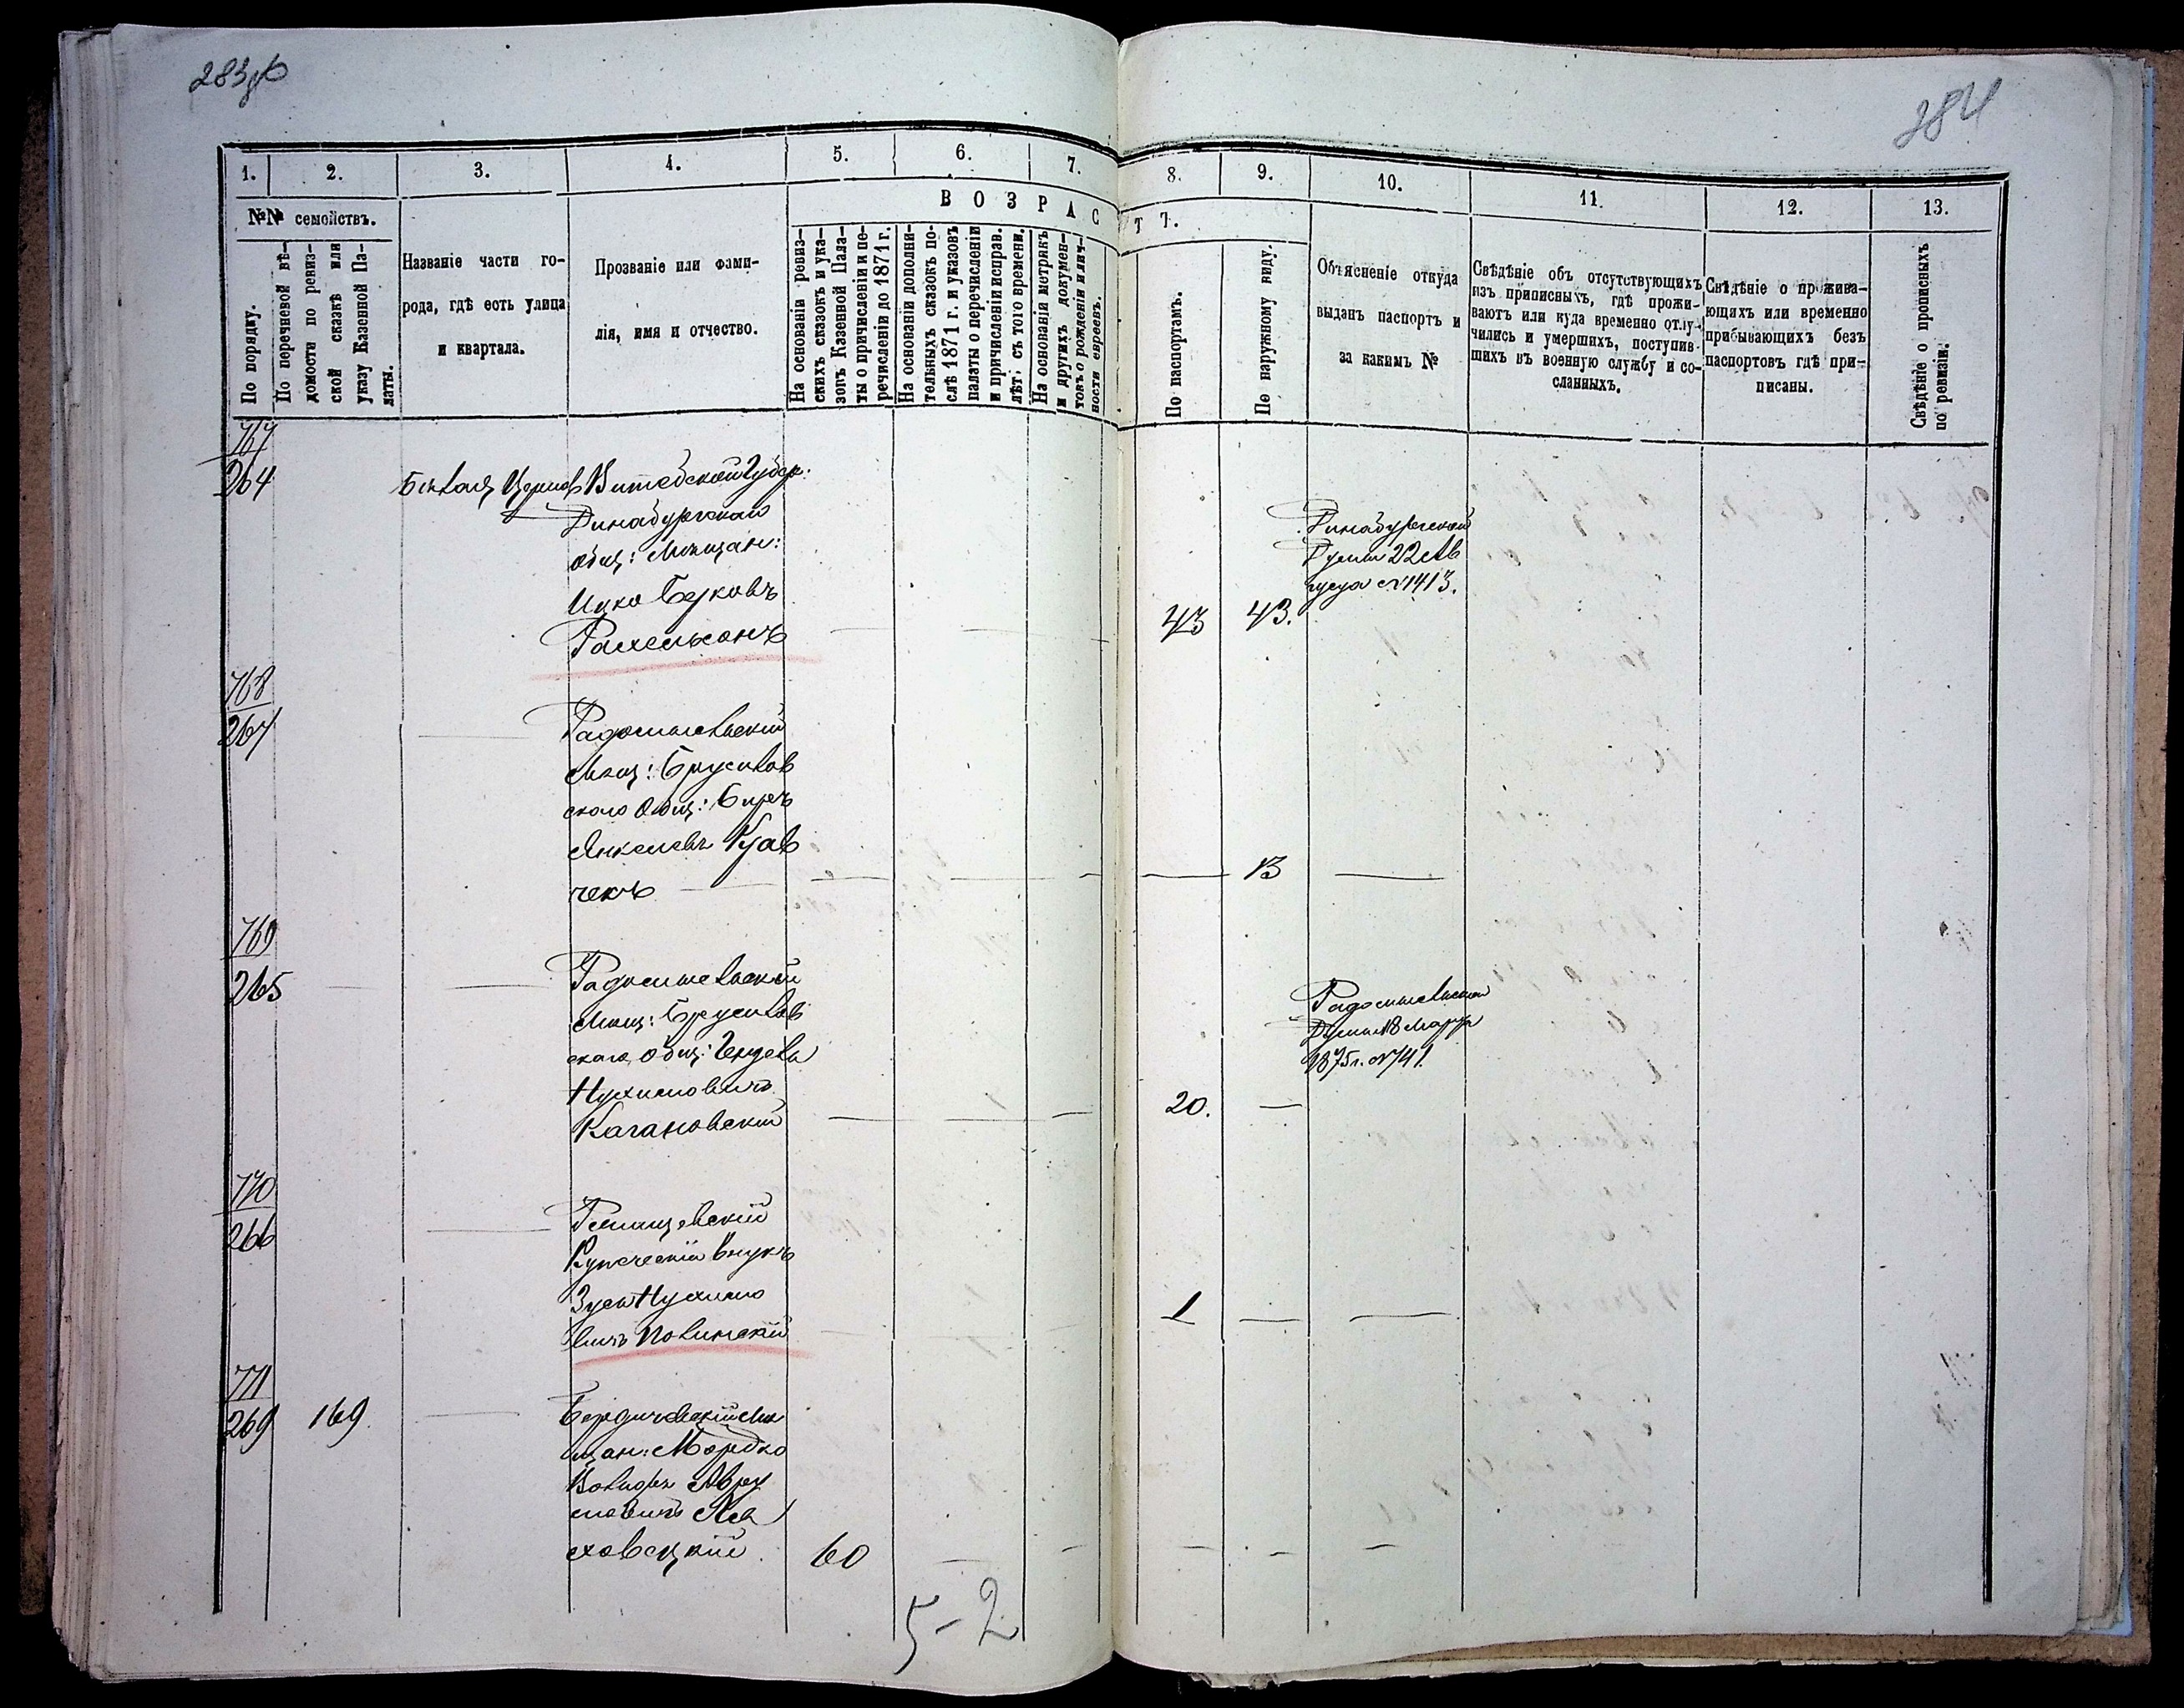 284
1.
2.
3.
4.
5.
6.
7.
8.
9.
10.
11.
12.
13.
№№ семействъ.
По порядку.
По перечневой вѣ-
домости по ревиз-
ской сказкѣ или
указу Казенной Па-
латы.
Названіе части го-
рода, гдѣ есть улица
и квартала.
Прозваніе или фами-
лія, имя и отчество.
ВОЗРАС
Т 7.
На основаніи ревиз-
скихъ сказокъ и ука-
зовъ Казенной Пала-
ты о причисленіи и пе-
речисленіи до 1871 г.
На основаніи дополни-
тельныхъ сказокъ по-
слѣ 1871 г. и указовъ
палаты о перечисленіи
и причисленіи исправ.
лѣт; съ того времени.
На основаніи метрикъ
и другихъ докумен-
товъ о рожденіи и лич-
ности евреевъ.
По паспортамъ.
По наружному виду.
Объясненіе откуда
выданъ паспортъ и
за какимъ №
Свѣдѣніе объ отсутствующихъ
изъ приписныхъ, гдѣ прожи-
ваютъ или куда временно отлу-
чились и умершихъ, поступив-
шихъ въ военную службу и со-
сланныхъ.
Свѣдѣніе о прожива-
ющихъ или временно
прибывающихъ безъ
паспортовъ гдѣ при-
писаны.
Свѣдѣніе о прописныхъ
по ревизіи.
767
264
Бѣлая Церковь Витебской Губер:
Динабургскаго
общ: Мѣщан:
Ицко Берковъ
Рахельсонъ
43
43.
Динабургской
Думы 22 Ав
густа №1413.
768
267
Радомысльскій
Мѣщ: Брусилов
скаго Общ: Беръ
Янкелевъ Крав
чекъ
13
769
265
Радомысльскій
Мѣщ: Брусилов
скаго общ:
Нухимовичъ
Кагановскій
20.
Радомысльской
Думы 18 Марта
1875 г. №741.
770
266
Купеческій внукъ
Зусь Нухимо
вичъ Полинскій
1
771
269
169.
Бердичевскій Мѣ
щан: Мордко
Вольфъ Авру
мовичъ Ля
ховецкій
60
5-2